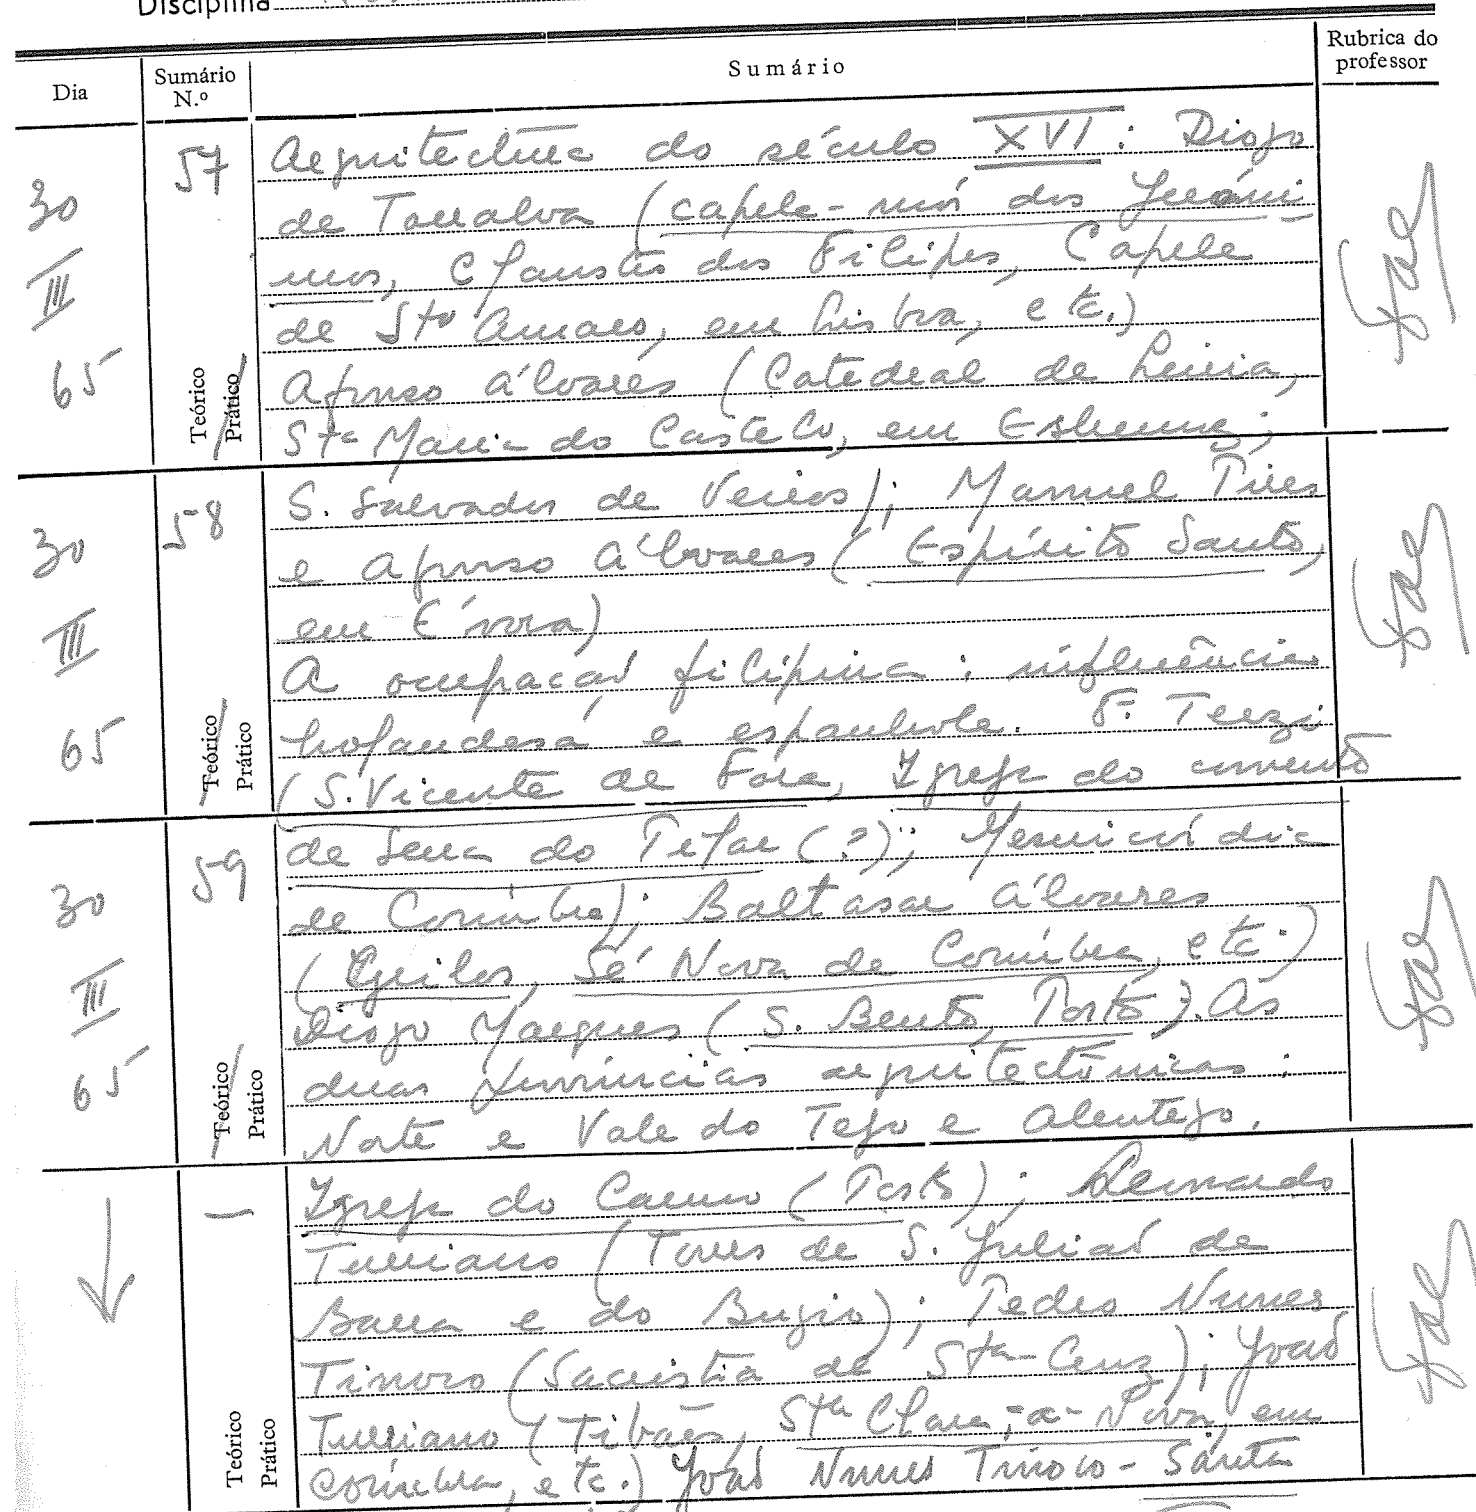 Disciplina
Dia
Sumário N.º
Sumário
Rubrica do professor
30 III 65
57
Teórico Prático
Arquitectura do século XVI: Diogo
de Torralva (capela-mór dos Jeróni
mos, Claustro dos Filipes, Capela
de Sto Amaro, em Lisboa, etc.)
Afonso Álvares (Catedral de Leiria,
Sta Maria do Castelo, em Estremoz;
30 III 65
58
Teórico Prático
S. Salvador de Veiros); Manuel Pires
e Afonso Álvares (Espírito Santo,
em Évora)
A ocupação filipina: influências
holandesa e espanhola. F. Terzi
(S. Vicente de Fora, Igreja do convento
30 III 65
59
Teórico Prático
de Serra do Pilar (?); Misericórdia
de Coimbra); Baltasar Álvares
(Grilos, Sé Nova de Coimbra, etc.)
Diogo Marques (S. Bento, Porto). As
duas províncias arquitectónicas:
Norte e Vale do Tejo e Alentejo.
—
Teórico Prático
Igreja do Carmo (Porto); Leonardo
Turriano (Torres de S. Julião de
Barra e do Bugio); Pedro Nunes
Tinoco (Sacristia de Sta Cruz); João
Turriano (Tibães, Sta Clara-a-Nova, em
Coimbra, etc.) João Nunes Tinoco - Santa